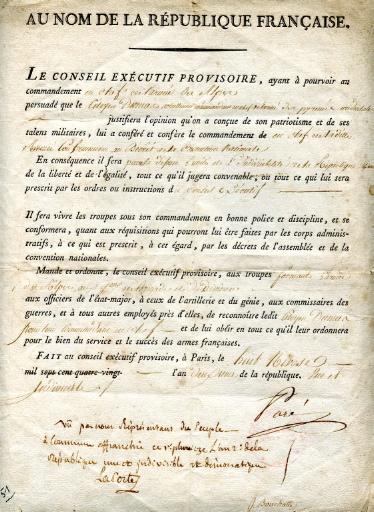 AU NOM DE LA RÉPUBLIQUE FRANÇAISE.
LE CONSEIL EXÉCUTIF PROVISOIRE, ayant à pourvoir au
commandement en chef de l'armée des Alpes
persuadé que le Citoyen Dumas
justifiera l'opinion qu'on a conçue de son patriotisme et de
ses talens militaires, lui a conféré et confère le commandement de en chef de ladite
Armée
En conséquence il fera pour la défense de l'
de la liberté et de l'égalité, tout ce qu'il jugera convenable; ou tout ce qui lui sera
prescrit par les ordres ou instructions du Conseil Exécutif
Il fera vivre les troupes sous son commandement en bonne police et discipline, et se
conformera, quant aux réquisitions qui pourront lui être faites par les corps adminis-
tratifs, à ce qui est prescrit, à cet égard, par les décrets de l'assemblée et de la
convention nationales.
Mande et ordonne, le conseil exécutif provisoire, aux troupes formant l'armée
des Alpes
aux officiers de l'état-major, à ceux de l'artillerie et du génie, aux commissaires des
guerres, et à tous autres employés près d'elles, de reconnoître ledit Citoyen Dumas
commandant en chef et de lui obéir en tout ce qu'il leur ordonnera
pour le bien du service et le succès des armes françaises.
FAIT au conseil exécutif provisoire, à Paris, le huit Nivose
mil sept cent quatre-vingt- l'an deuxieme de la république. Une et
Indivisible
Paré
Vû par nous Représentans du Peuple
à Commune affranchie ce Pluviose L'an 2 de la
République une et indivisible et démocratique
LaPorte
J. Bouchotte
51